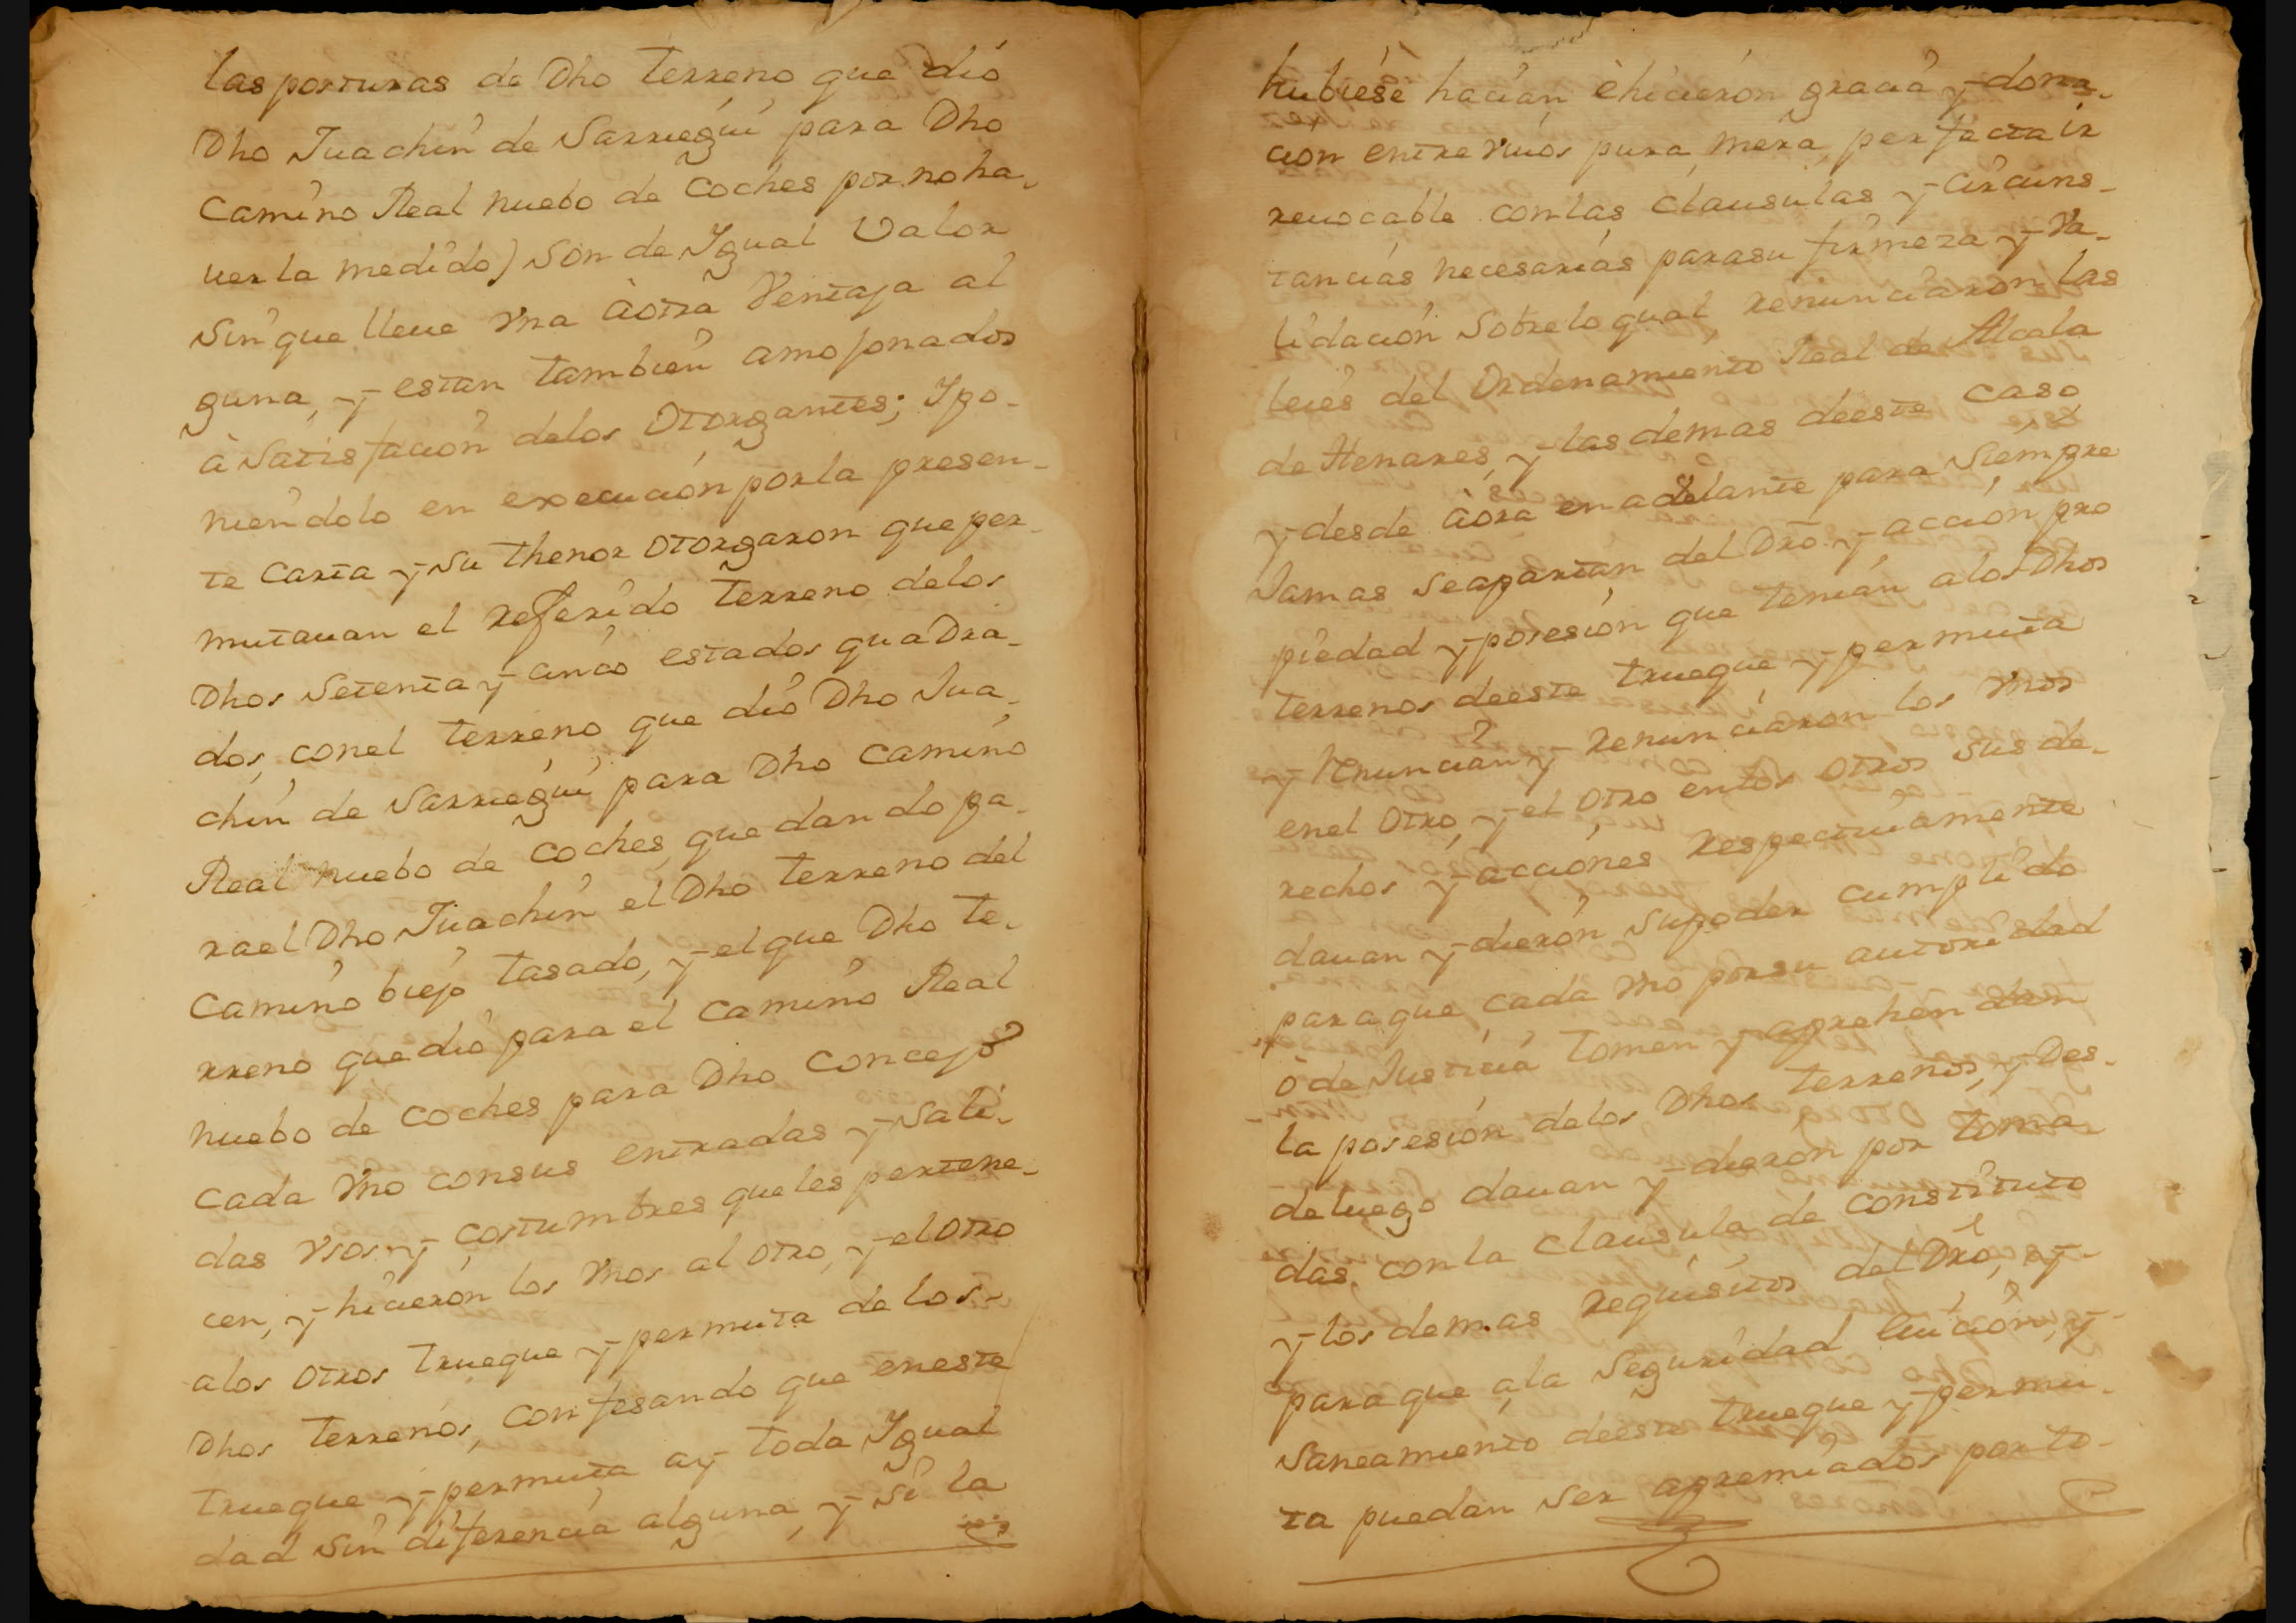 las posturas de Dho terreno que dió
Dho Juachin de Sarriegui para Dho
Camino Real nuebo de Coches por no ha-
uerla medido) son de Igual Valor
sin que lleue vna à otra Ventaja al
guna, y estan tambien amojonados
à satisfacion delos Otorgantes; Ypo-
niendolo en execucion porla presen-
te carta y su thenor otorgaron que per-
mutauan el referido terreno delos
Dhos setenta y cinco estados quadra-
dos, conel terreno que dió Dho Jua-
chin de Sarriegui para Dho camino
Real nuebo de coches quedando pa-
rael Dho Juachin el Dho terreno del
camino biejo tasado, y elque Dho te-
rreno quedió para el camino Real
nuebo de coches para Dho Concejo
cada vno consus entradas y sali-
das vsos y costumbres queles pertene-
cen, y hicieron los vnos al otro, y el otro
alos otros trueque y permuta de los-
Dhos terrenos, confesando que eneste
trueque y permuta ay toda Igual
dad sin diferencia alguna, y si la
hubiese hacian è hicieron gracia y dona-
cion entre viuos pura mera, perfecta ir
reuocable conlas clausulas y circuns-
tancias necesarias parasu firmeza y va-
lidacion sobrelo qual renunciaron las
leies del Ordenamiento Real de Alcala
de Henares, y las demas deeste caso
y desde aora en adelante para siempre
Jamas se apartan del Dro y accion pro
piedad y posesion que tenian alos Dhos
terrenos deeste trueque y permuta
y renuncian y renunciaron los vnos
enel otro, y el otro enlos otros sus de-
rechos y acciones respectiuamente
dauan y dieron supoder cumplido
para que cada vno porsu autoridad
ò de Justicia tomen y aprehendan
la posesion delos Dhos terrenos, y Des-
deluego dauan y dieron por toma
das, conla clausula de constituto
y los demas requisitos del Dro, y-
para que ala seguridad euicion, y-
saneamiento deeste trueque y permu-
ta puedan ser apremiados por to-